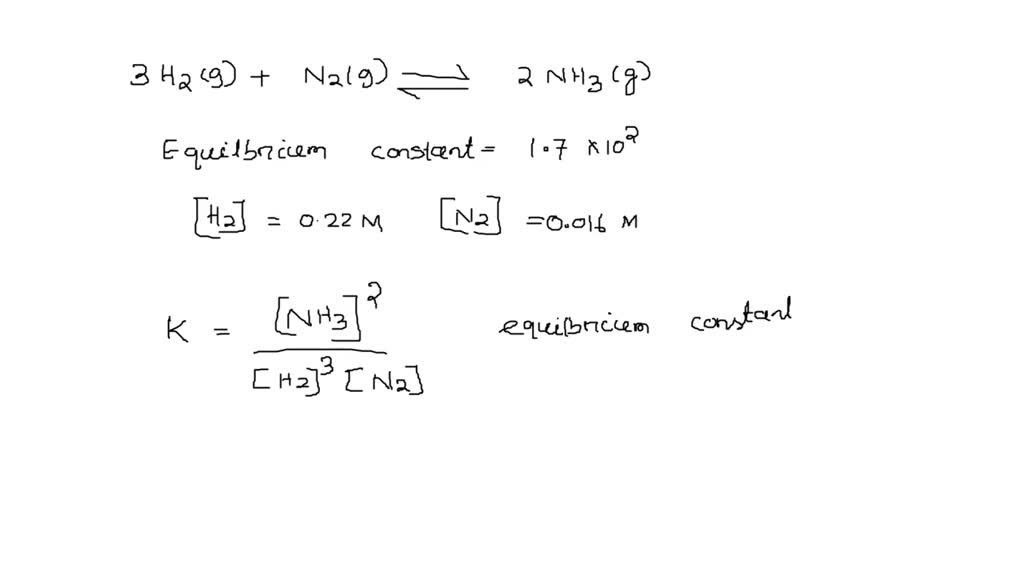 3 H2(g) + N2(g) ⇌ 2 NH3(g)
Equilbricum constant = 1.7 × 10^2
[H2] = 0.22 M [N2] = 0.016 M
K = [NH3]^2 / [H2]^3 [N2] equilbricum constant